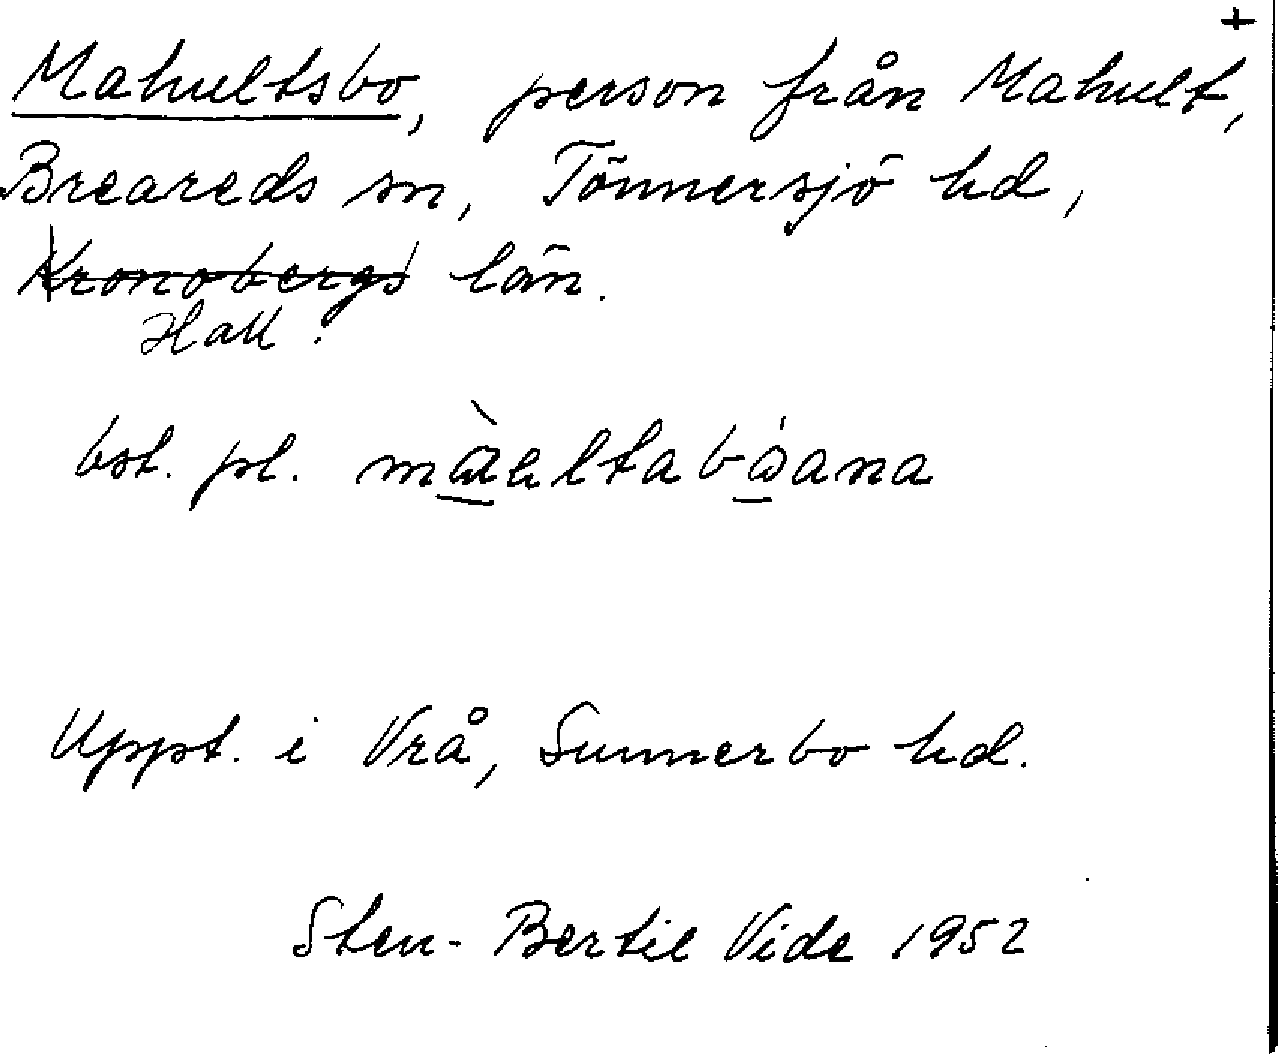 +
Mahultsbo, person från Mahult,
Breareds sn, Tönnersjö hd,
Kronobergs län.
Hall.
bst. pl.
Uppt. i Vrå, Sunnerbo hd.
Sten-Bertil Vide 1952